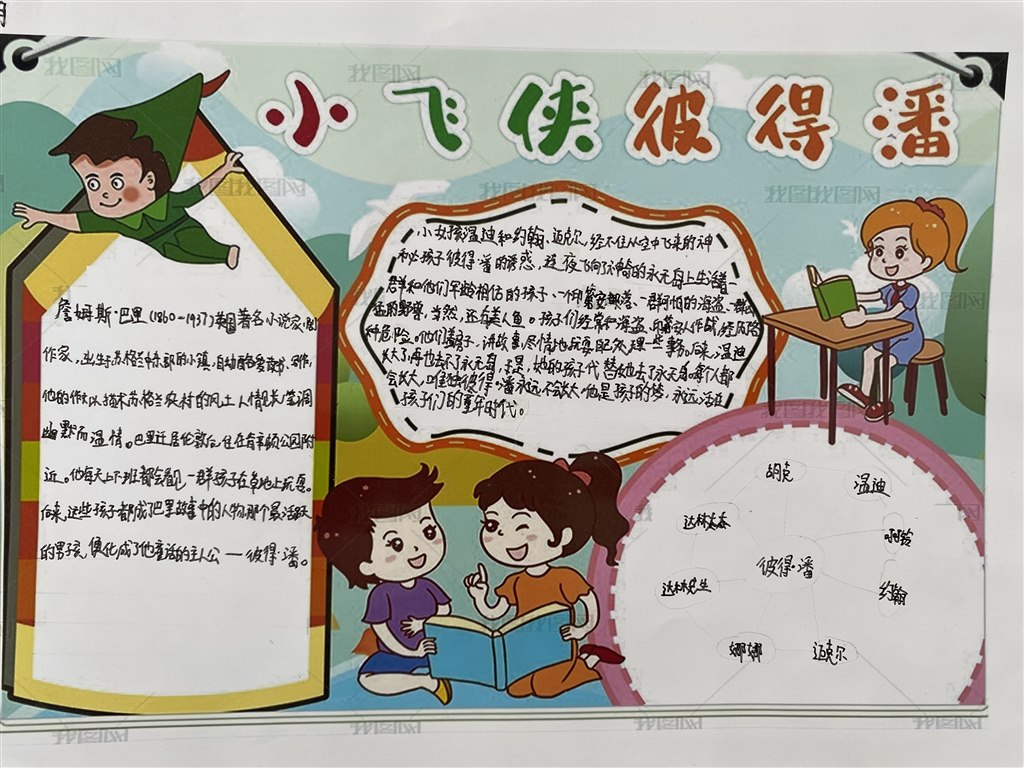 小飞侠彼得潘
詹姆斯·巴里(1860-1937)英国著名小说家,剧
作家,出生苏格兰东部的小镇,自幼酷爱读书、写作,
他的作以描术苏格兰农村的风土人情见长,笔调
幽默而温情。巴里迁居伦敦后,住在肯辛顿公园附
近。他每天上下班都会看见一群孩子在草地上玩耍。
后来,这些孩子都成了巴里故事中的人物那个最活跃
的男孩,便化成了他童话的主人公一彼得·潘。
小女孩温迪和约翰、迈克尔,经不住从空中飞来的神
秘孩子彼得·潘的诱惑,连夜飞向了永无岛上生活着一
群和他们年龄相仿的孩子、一个部落、一群可怕的海盗、一群
猛的野兽,当然,还有美人鱼。孩子们经常和海盗、作战,经历险
种危险。他们讲故事,尽情地玩耍,后来,温迪
长大了,再也去不了永无岛,于是,她的孩子代替她去了永无岛。每个人都
会长大,唯独彼得·潘永远不会长大,他是孩子的梦,永远活在
孩子们的童年时代。
胡克
温迪
达林太太
啊铃
彼得·潘
达林先生
约翰
娜娜
迈克尔
找图网